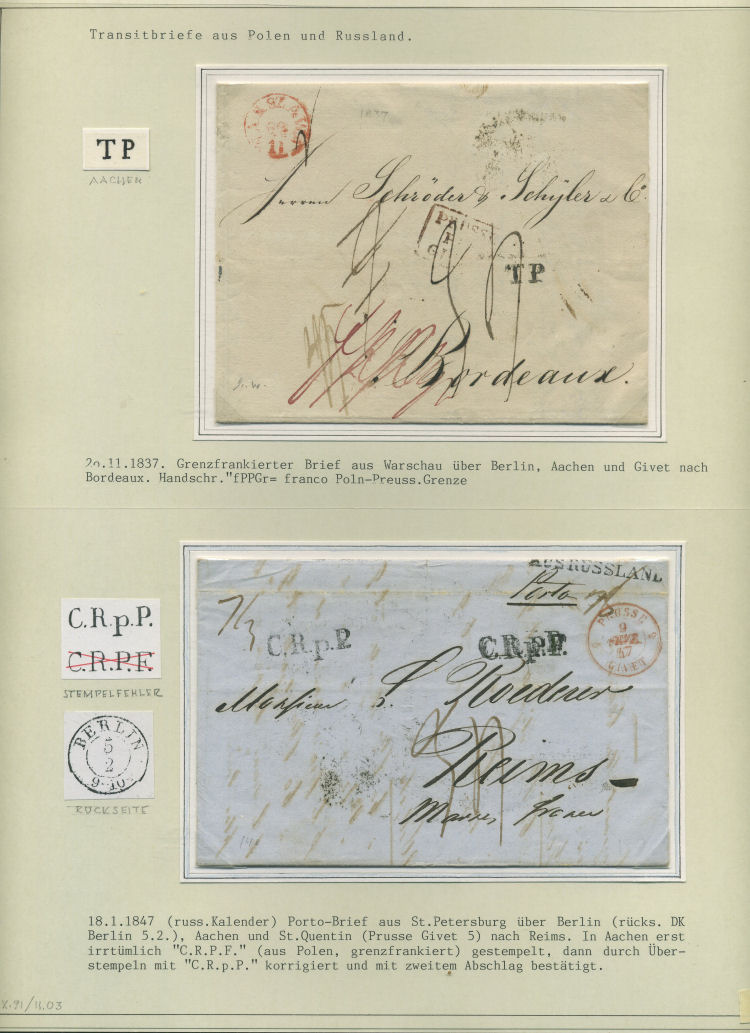 Transitbriefe aus Polen und Russland.
TP
AACHEN
1837
11
Herren Schröder & Schÿler & Co.
PRUSSE
TP
Bordeaux.
20.11.1837. Grenzfrankierter Brief aus Warschau über Berlin, Aachen und Givet nach
Bordeaux. Handschr."fPPGr= franco Poln-Preuss.Grenze
AUS RUSSLAND
Porto
C.R.p.P.
C.R.P.F.
STEMPELFEHLER
BERLIN
5
2
9-10
RÜCKSEITE
7/3
C.R.p.P.
C.R.p.P.
PRUSSE
9
FEVR
47
GIVET
Monsieur L. Roederer
Reims
18.1.1847 (russ.Kalender) Porto-Brief aus St.Petersburg über Berlin (rücks. DK
Berlin 5.2.), Aachen und St.Quentin (Prusse Givet 5) nach Reims. In Aachen erst
irrtümlich "C.R.P.F." (aus Polen, grenzfrankiert) gestempelt, dann durch Über-
stempeln mit "C.R.p.P." korrigiert und mit zweitem Abschlag bestätigt.
X.91/11.03